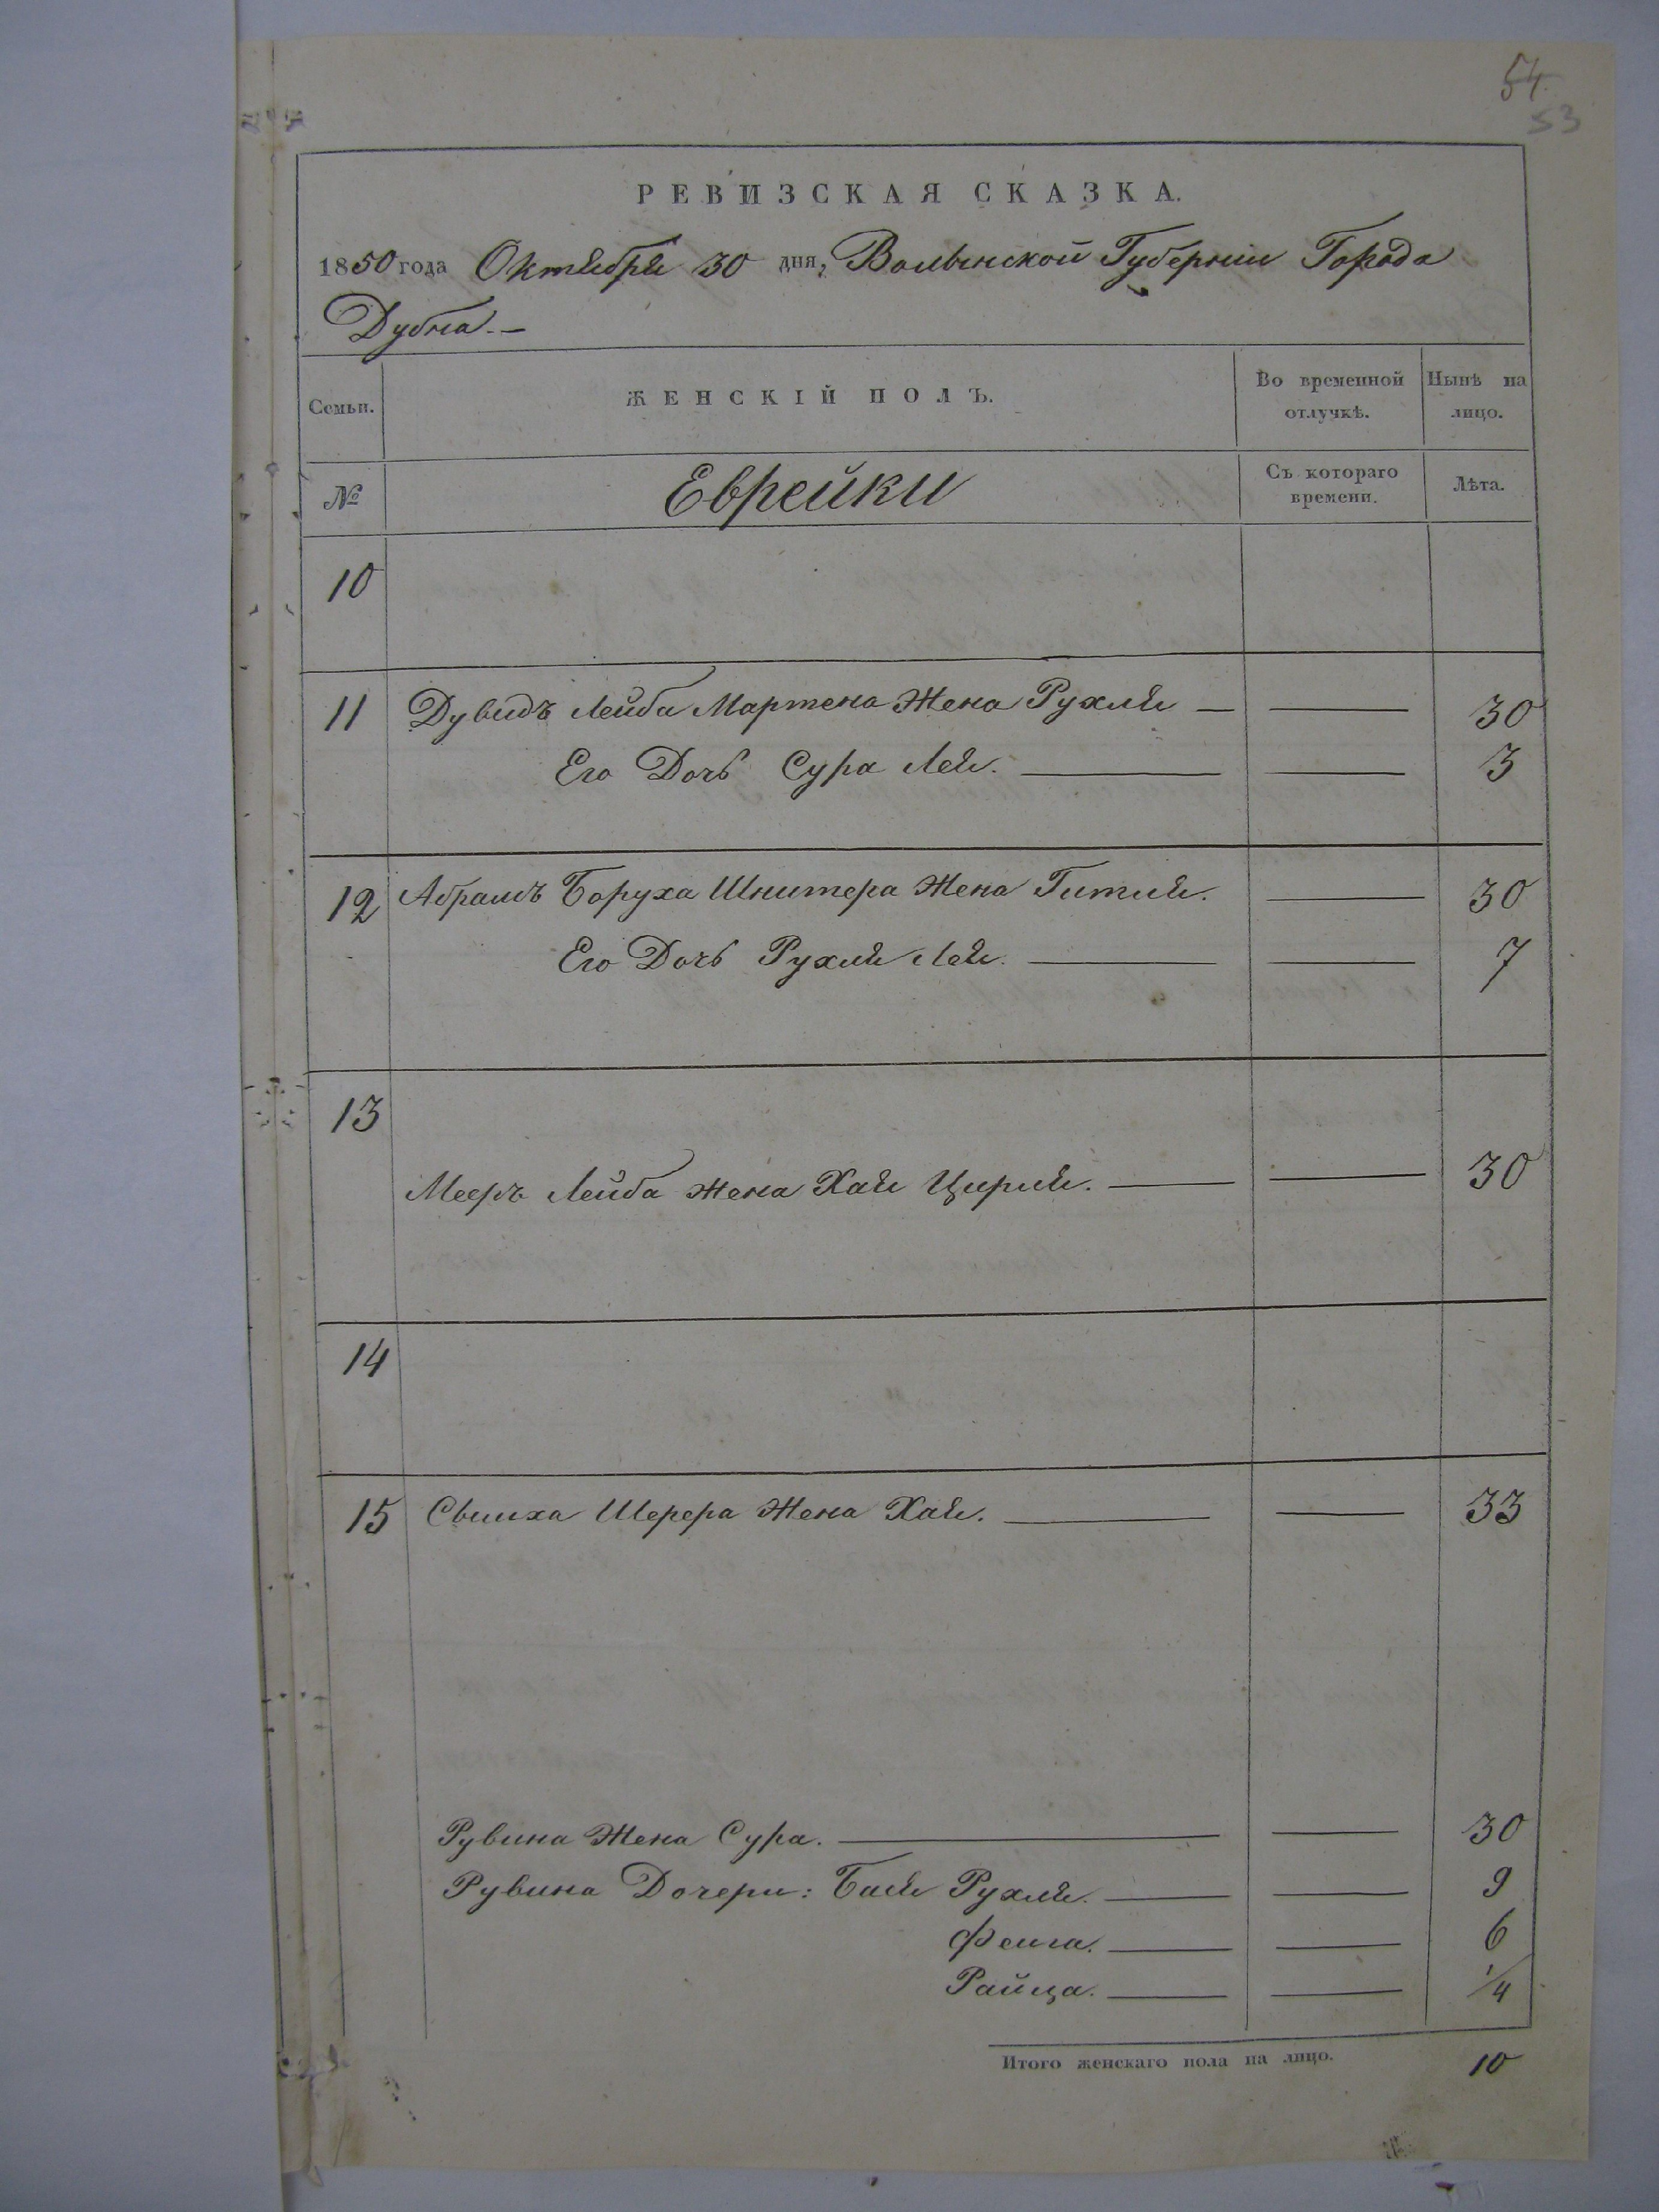 54.
53
РЕВИЗСКАЯ СКАЗКА.
1850 года Октября 30 дня, Волынской Губернии Города
Дубна.-
Семьи. ЖЕНСКІЙ ПОЛЪ. Во временной отлучкѣ. Нынѣ на лицо.
№ Еврейки Съ котораго времени. Лѣта.
10
11 Дувидъ Лейба Мартена Жена Рухля — — 30
Его Дочь Сура Лея. — — 3
12 Абрамъ Боруха Шнитера Жена Гитля. — 30
Его Дочь Рухля Лея. — — 7
13
Мееръ Лейба жена Хая Цирля. — — 30
14
15 Свшиха Шерера Жена Хая. — — 33
Рувина Жена Сура. — — 30
Рувина Дочери: Бася Рухля. — — 9
Феига. — — 6
Райца. — — 1/4
Итого женскаго пола на лицо. 10